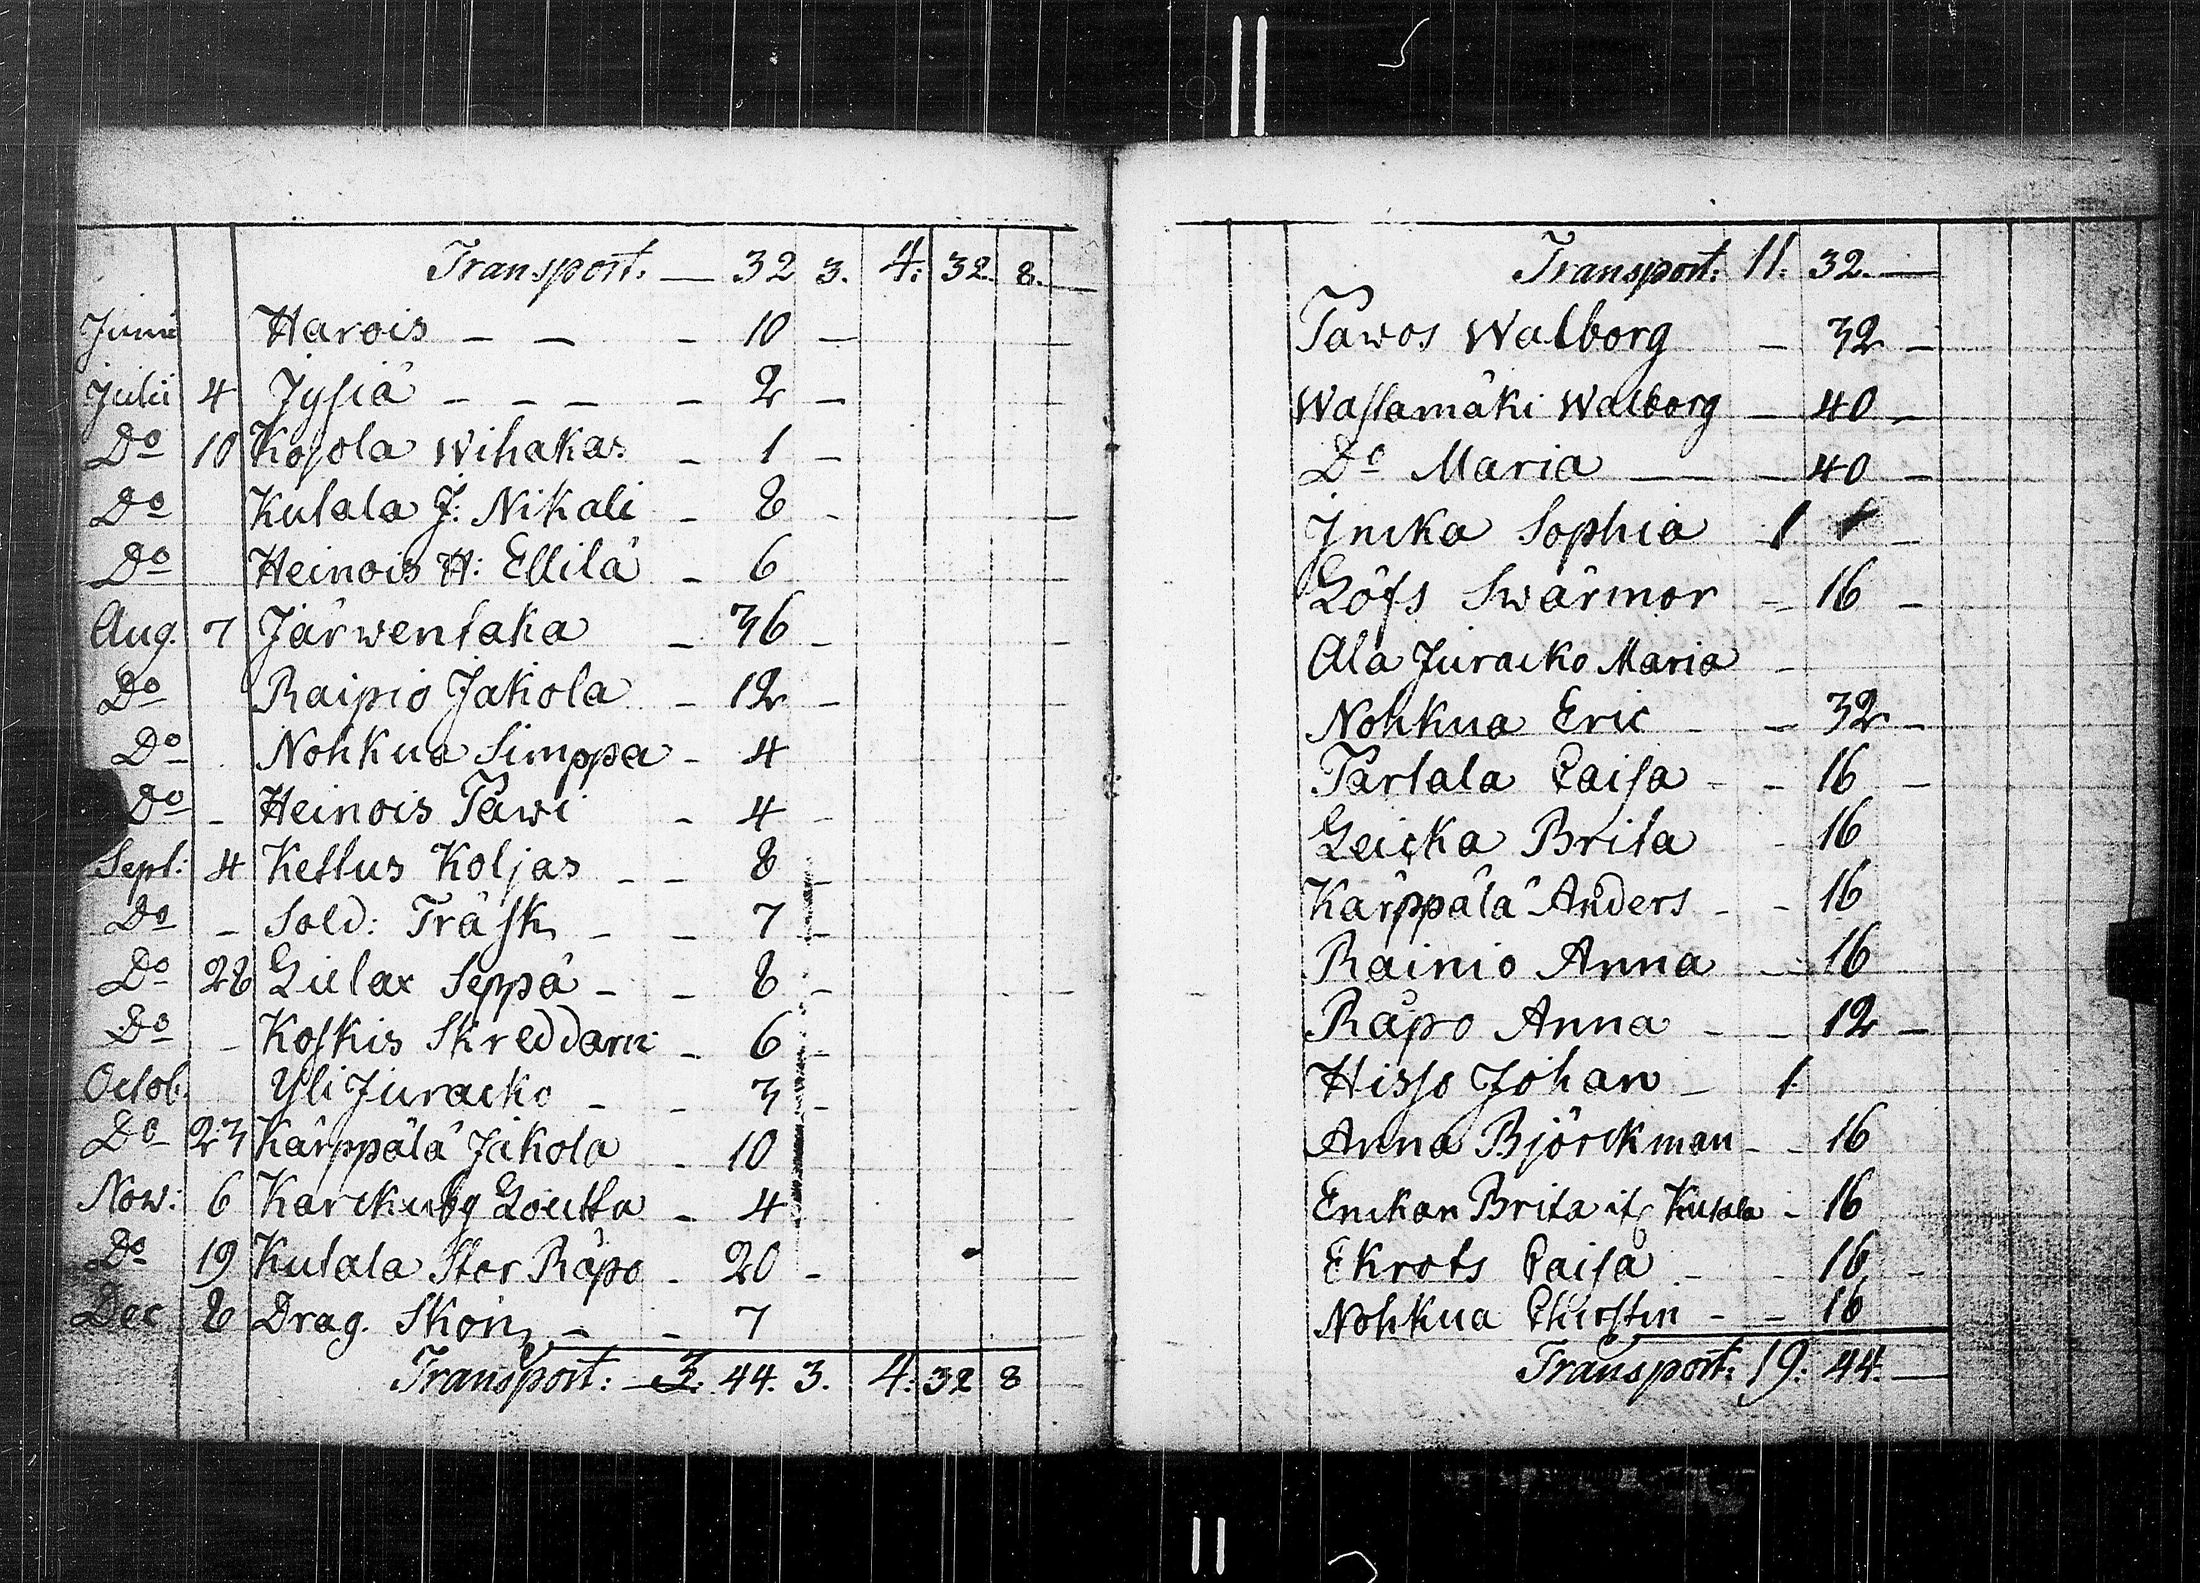 Transport. — 32 3. 4: 32. 8.
Junii Harois — — — 10 —
Julii 4 Jysiä — — — — 2 —
Do 10 Kosola Wihakas — 1 —
Do Kutala J: Nikali — 8 —
Do Heinois H: Ellilä — 6
Aug. 7 Järwentaka — 36 —
Do Raipio Jakola — 12 —
Do Nohkua Simppa — 4
Do — Heinois Tawi — 4 —
Sept: 4 Kettus Koljas — — 8 —
Do — Sold: Träsk — — 7 —
Do 28 Seppä — — 8 —
Do — Koskis Skreddarn — 6 —
Octob. Yli Juracko — — 3 —
Do 23 Kärppälä Jakola — 10
Now: 6 — 4
Do 19 Kutala Stor Räpo — 20 —
Dec 8 Drag. Skön — — 7
Transport: — 3: 44. 3. 4: 32 8
Transport: 11: 32. —
Tawos Walborg — 32 —
Wastamäki Walborg — 40 —
Do Maria — — 40 —
Sophia 1 —
Löfs Swärmor — 16 —
Ala Juracko Maria —
Nohkua Eric — — 32 —
Tartala Caisa — — 16 —
Brita — 16
Kärppälä Anders — — 16
Rainio Anna — 16
Räpo Anna — — 12 —
Hisso Johan — 1
Anna Björckman — — 16
Enckan Brita Kutala — 16
Ekrots Caisa — — 16 —
Nohkua Christin — — 16
Transport: 19: 44. —